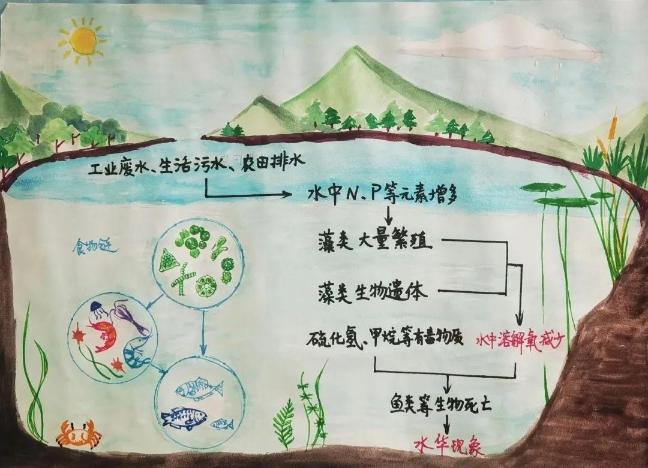 工业废水、生活污水、农田排水
水中N、P等元素增多
食物链
藻类大量繁殖
藻类生物遗体
硫化氢、甲烷等有毒物质
水中溶解氧减少
鱼类等生物死亡
水华现象